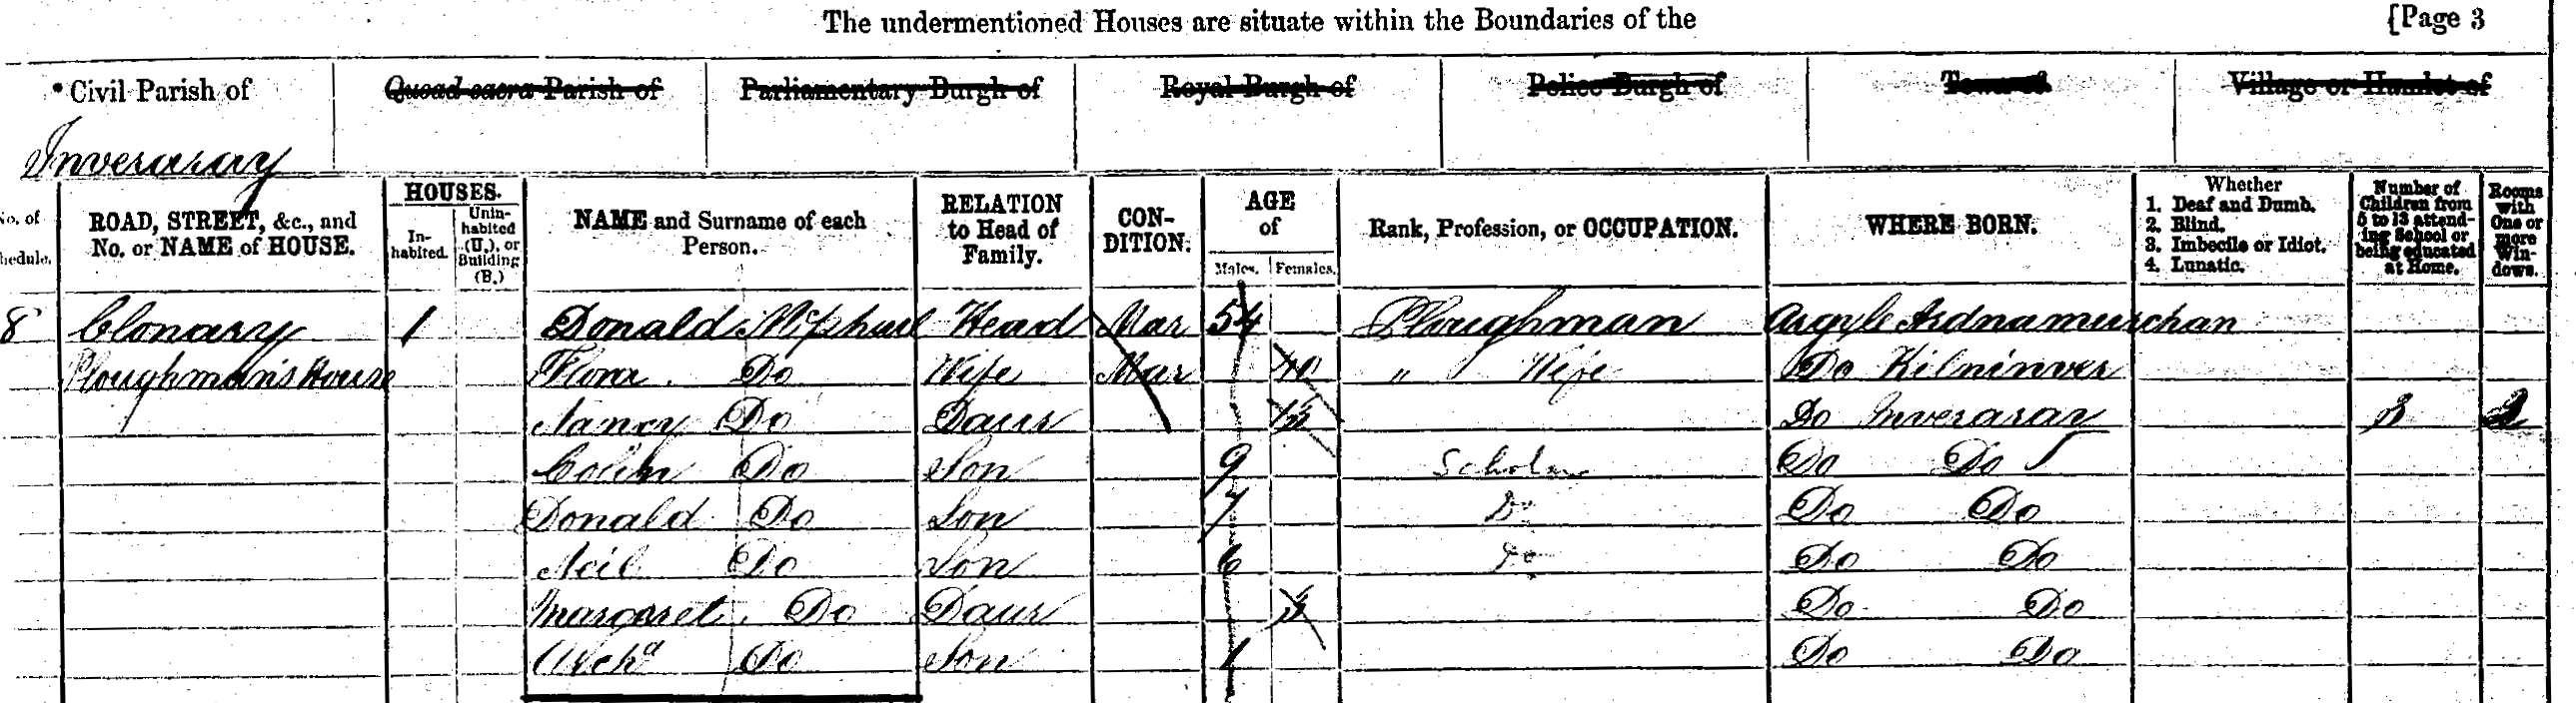 The undermentioned Houses are situate within the Boundaries of the [Page 3
Civil Parish of Quoad sacra Parish of Parliamentary Burgh of Royal Burgh of Police Burgh of Town of Village or Hamlet of
Inveraray
No. of Schedule. ROAD, STREET, &c., and No. or NAME of HOUSE. HOUSES. In-habited. Unin-habited (U.), or Building (B.) NAME and Surname of each Person. RELATION to Head of Family. CON-DITION. AGE of Males. Females. Rank, Profession, or OCCUPATION. WHERE BORN. Whether 1. Deaf and Dumb. 2. Blind. 3. Imbecile or Idiot. 4. Lunatic. Number of Children from 5 to 13 attend-ing School or being educated at Home. Rooms with One or more Win-dows.
8 Clonary 1 Donald McPhail Head Mar 54 Ploughman Argyle Ardnamurchan
Ploughmans House Flora Do Wife Mar 40 " Wife Do Kilninver
Nancy Do Daur Do Inveraray 3 2
Colin Do Son 9 Scholar Do Do
Donald Do Son 7 Do Do Do
Neil Do Son 6 Do Do Do
Margaret Do Daur 3 Do Do
Archd Do Son 1 Do Do